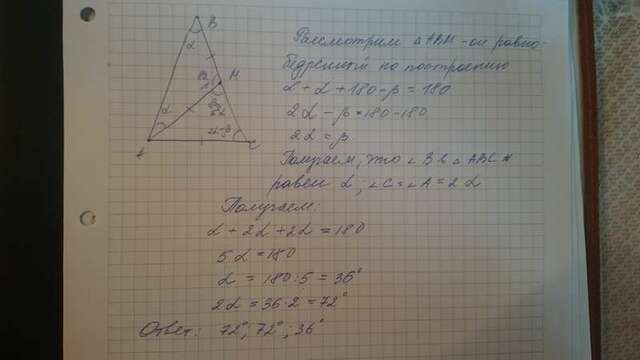 B
α
M
α
2α=β
A
C
Рассмотрим △ABM - он равно-
бедренный по построению
α + α + 180 - β = 180
2α - β = 180 - 180
2α = β
Получаем, что ∠B в △ABC
равен α; ∠C = ∠A = 2α
Получаем:
α + 2α + 2α = 180
5α = 180
α = 180 : 5 = 36°
2α = 36 · 2 = 72°
Ответ: 72°; 72°; 36°